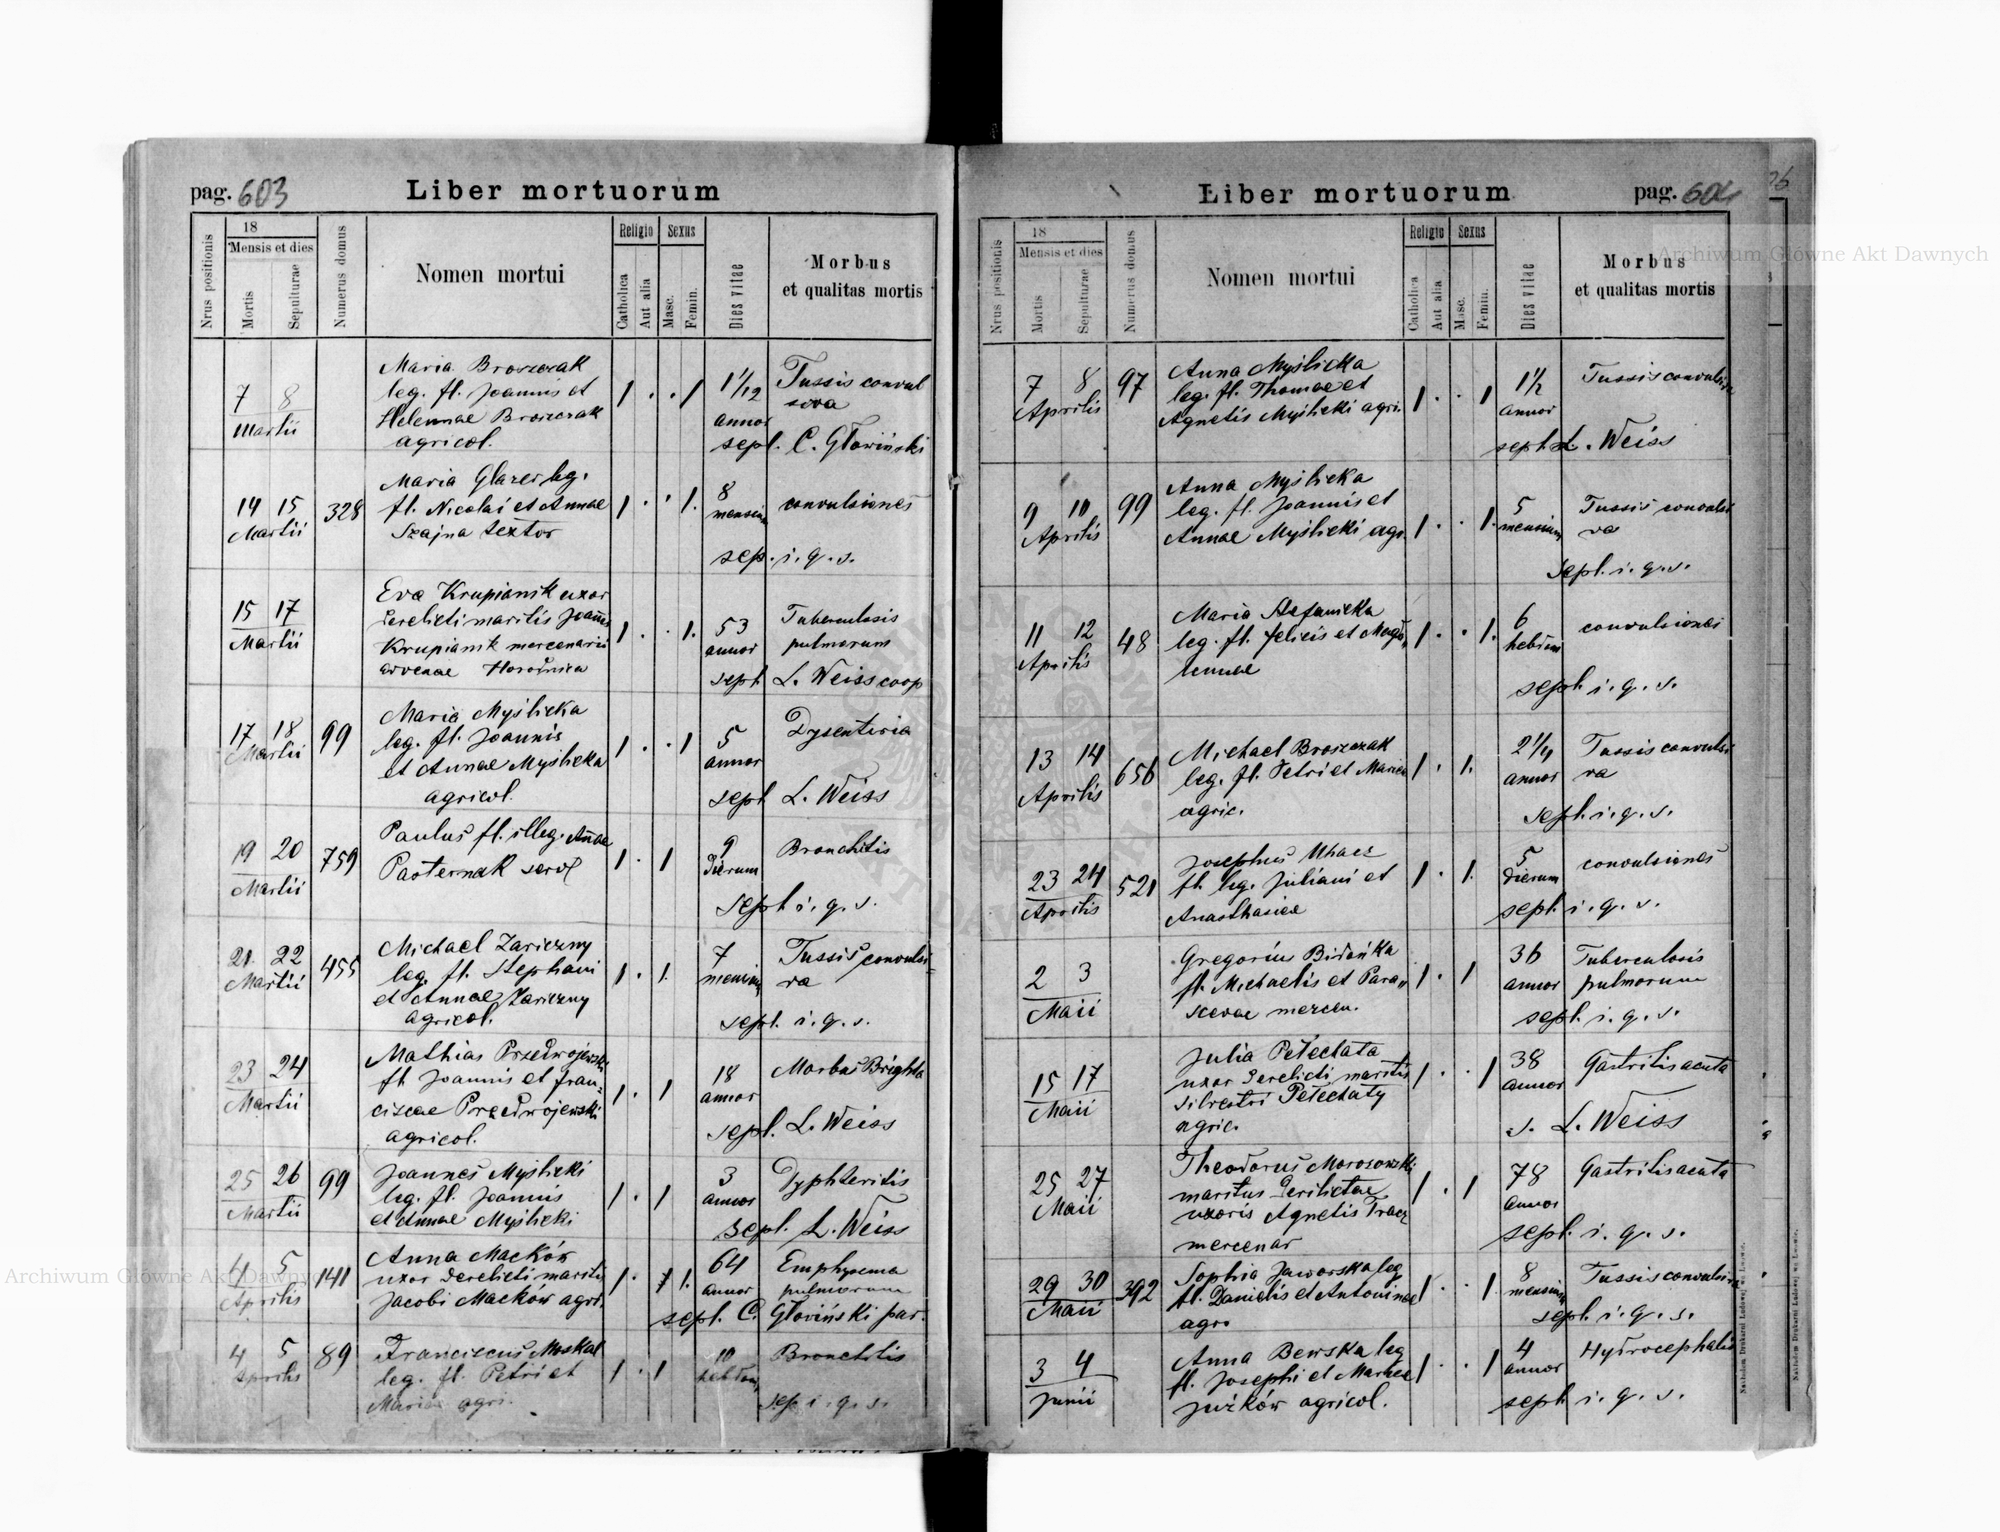 pag. 603
Liber mortuorum
Nrus positionis
18
Mensis et dies
Mortis
Sepulturae
Numerus domus
Nomen mortui
Religio
Catholica
Aut alia
Sexus
Masc.
Femin.
Dies vitae
Morbus
et qualitas mortis
7 8
Martii
Maria Broszczak
leg. fl. Joannis et
Helennae Broszczak
agricol.
1 . . 1
1 1/12
annor
Tussis convul
siva
sepl. C. Głowiński
14 15
Martii
328
Maria Glazer leg.
fl. Nicolai et Annae
Szajna textor
1 . . 1.
8
mensium
convulsiones
sep. i. q. s.
15 17
Martii
Eva Krupianik uxor
derelicti maritis Joannis
Krupianik mercenarii
advenae Horodnica
1 . . 1.
53
annor
Tuberculosis
pulmorum
sepl. L. Weiss coop
17 18
Martii
99
Maria Myślicka
leg. fl. Joannis
et Annae Myślicka
agricol.
1 . . 1
5
annor
Dysenteria
sepl L. Weiss
19 20
Martii
759
Paulus fl. illeg. Annae
Pasternak
1 . 1
9
dierum
Bronchitis
sepl i. q. s.
21. 22
Martii
455
Michael Zariczny
leg. fl. Stephani
et Annae Zariczny
agricol.
1 . 1.
7
mensium
Tussis convulsi
va
sepl. i. q. s.
23 24
Martii
Mathias Przedwojewski
fl. Joannis et Fran-
ciscae Przedwojewski
agricol.
1 . 1
18
annor
Morbus Brighta
sepl. L. Weiss
25 26
Martii
99
Joannes Myślicki
leg. fl. Joannis
et Annae Myślicki
1 . 1
3
annor
Dyphteritis
sepl. L. Weiss
4 5
Aprilis
141
Anna Maćków
uxor derelicti mariti
Jacobi Maćków agri.
1 . 1.
64
annor
Emphysema
pulmorum
sepl. C. Głowiński par.
4 5
Aprilis
89
Franciscus Moskal
leg. fl. Petri et
Mariae agri.
1 . 1
10
hebdom,
Bronchitis
sep i. q. s.
pag. 604
Liber mortuorum
Nrus positionis
18
Mensis et dies
Mortis
Sepulturae
Numerus domus
Nomen mortui
Religio
Catholica
Aut alia
Sexus
Masc.
Femin.
Dies vitae
Morbus
et qualitas mortis
7 8
Aprilis
97
Anna Myślicka
leg. fl. Thomae et
Agnetis Myślicki agri.
1 . . 1
1 1/2
annor
Tussis convulsiva
sepl. L. Weiss
9 10
Aprilis
99
Anna Myślicka
leg. fl. Joannis et
Annae Myślicki agr.
1 . . 1.
5
mensium
Tussis convulsi
va
sepl. i. q. s.
11 12
Aprilis
48
Maria Stefanicka
leg. fl. Felicis et Mag„
lennae
1 . . 1.
6
hebdom
convulsiones
sepl. i. q. s.
13 14
Aprilis
656
Michael Broszczak
leg. fl. Petri et Mariae
agric.
1 . 1.
2 1/4
annor
Tussis convulsi
va
sepl. i. q. s.
23 24
Aprilis
521
Josephus Uhacz
fl. leg. Juliani et
Anasthasiae
1 . 1.
5
dierum
convulsiones
sepl. i. q. s.
2 3
Maii
Gregorius Bidońka
fl. Michaelis et Para„
scevae mercen.
1 . 1
36
annor
Tuberculosis
pulmorum
sepl. i. q. s.
15 17
Maii
Julia Petechata
uxor derelicti maritis
Silvestri Petechaty
agric.
1 . . 1
38
annor
Gastritis acuta
s. L. Weiss
25 27
Maii
Theodorus Morozowski
maritus derelictae
uxoris Agnetis Tracz
mercenar
1 . 1
78
annor
Gastritis acuta
sepl. i. q. s.
29 30
Maii
392
Sophia Jaworska leg
fl. Danielis et Antoninae
agr.
1 . . 1.
8
mensium
Tussis convulsiva
sepl. i. q. s.
3 4
Junii
Anna Bewska leg
fl. Josephi et Mariae
Juźków agricol.
1 . . 1
4
annor
Hydrocephalis
sepl i. q. s.
Nakładem Drukarni Ludowej we Lwowie.
Nakładem Drukarni Ludowej we Lwowie.
Archiwum Główne Akt Dawnych
Archiwum Główne Akt Dawnych